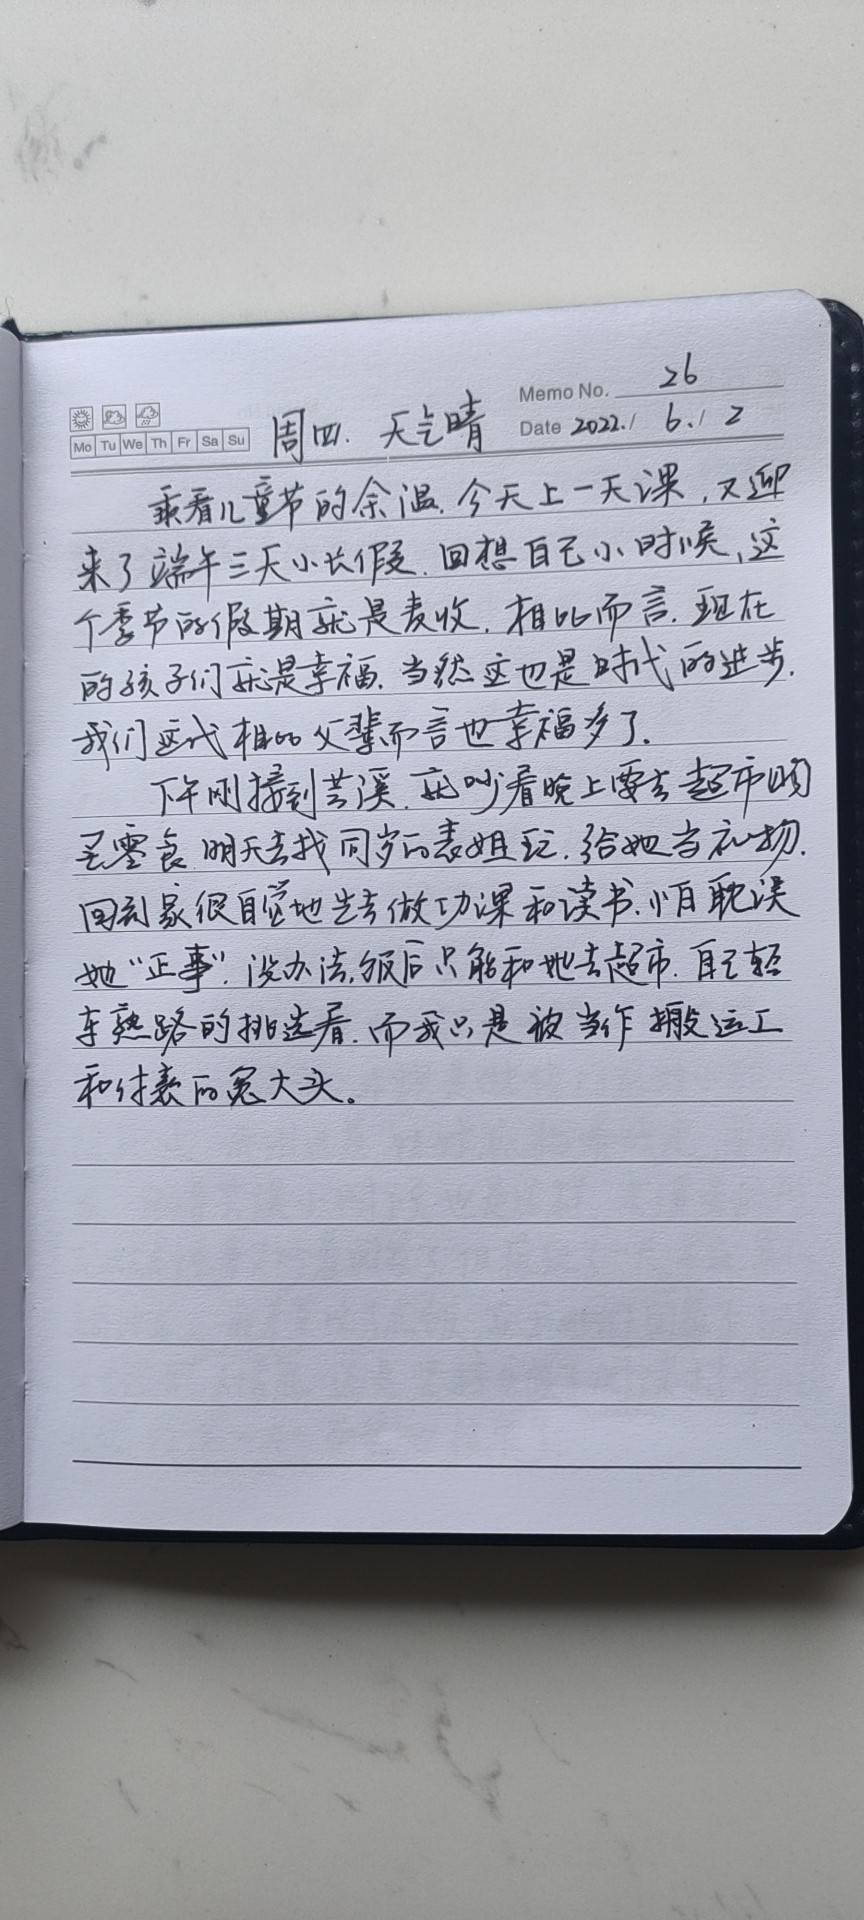 Memo No. 26
Mo Tu We Th Fr Sa Su
周四. 天气晴
Date 2022./ 6./ 2
乘着儿童节的余温,今天上一天课,又迎
来了端午三天小长假.回想自己小时候,这
个季节的假期就是麦收,相比而言.现在
的孩子们就是幸福.当然这也是时代的进步.
我们这代相比父辈而言也幸福多了.
下午刚接到芸溪.就吵着晚上要去超市购
买零食 明天去找同岁的表姐玩.给她当礼物.
回到家很自觉地先去做功课和读书.怕耽误
她“正事”.没办法,饭后只能和她去超市.自己轻
车熟路的挑选着.而我只是被当作搬运工
和付款的冤大头。